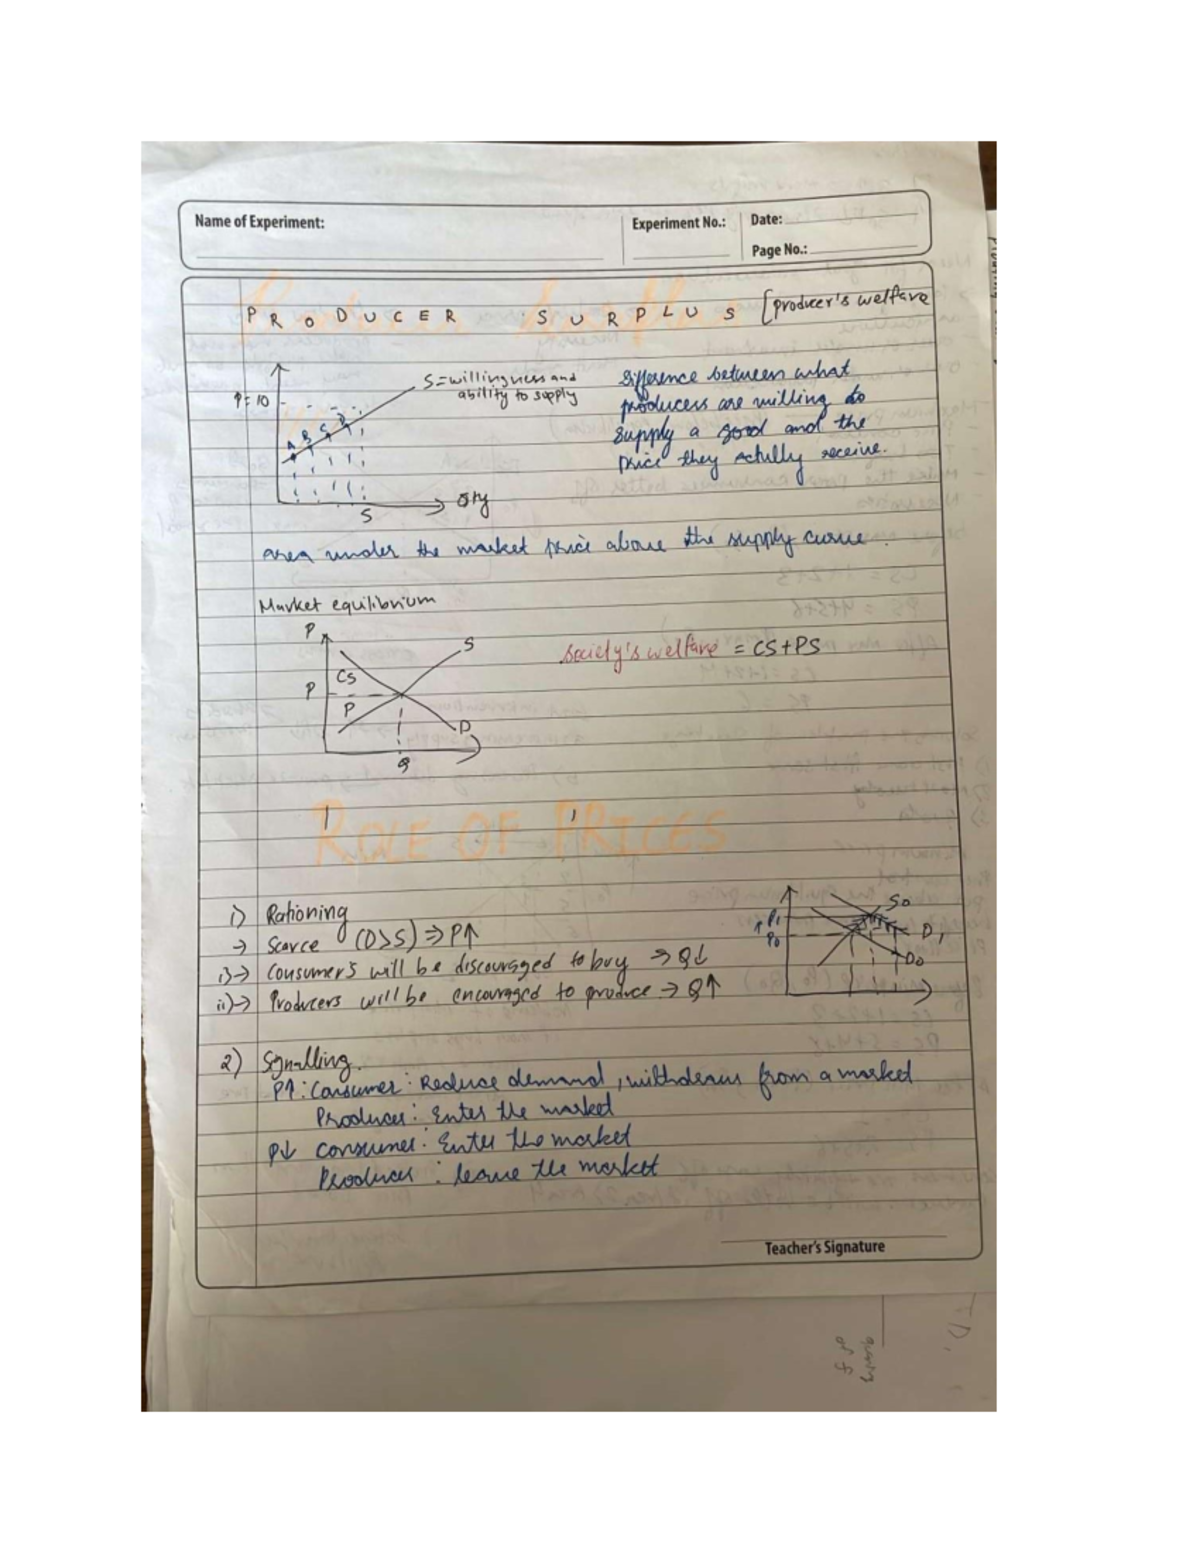 Name of Experiment:
Experiment No.:
Date:
Page No.:
PRODUCER SURPLUS [producer's welfare
S = willingness and
ability to supply
P = 10
A B C D
S
Qty
Difference between what
producers are willing to
supply a good and the
price they actully receive.
area under the market price above the supply curve.
Market equilibrium
P
S
CS
P
P
D
Q
Society's welfare = CS+PS
ROLE OF PRICES
1) Rationing
→ Scarce (D>S) ⇒ P↑
i)→ Consumer's will be discouraged to buy → Q↓
ii)→ Producers will be encouraged to produce → Q↑
S0
P1
↑ P0
D1
D0
2) Signalling.
P↑: Consumer: Reduce demand, withdraws from a market
Producer: Enter the market
P↓ consumer: Enter the market
Producer: leave the market
Teacher's Signature